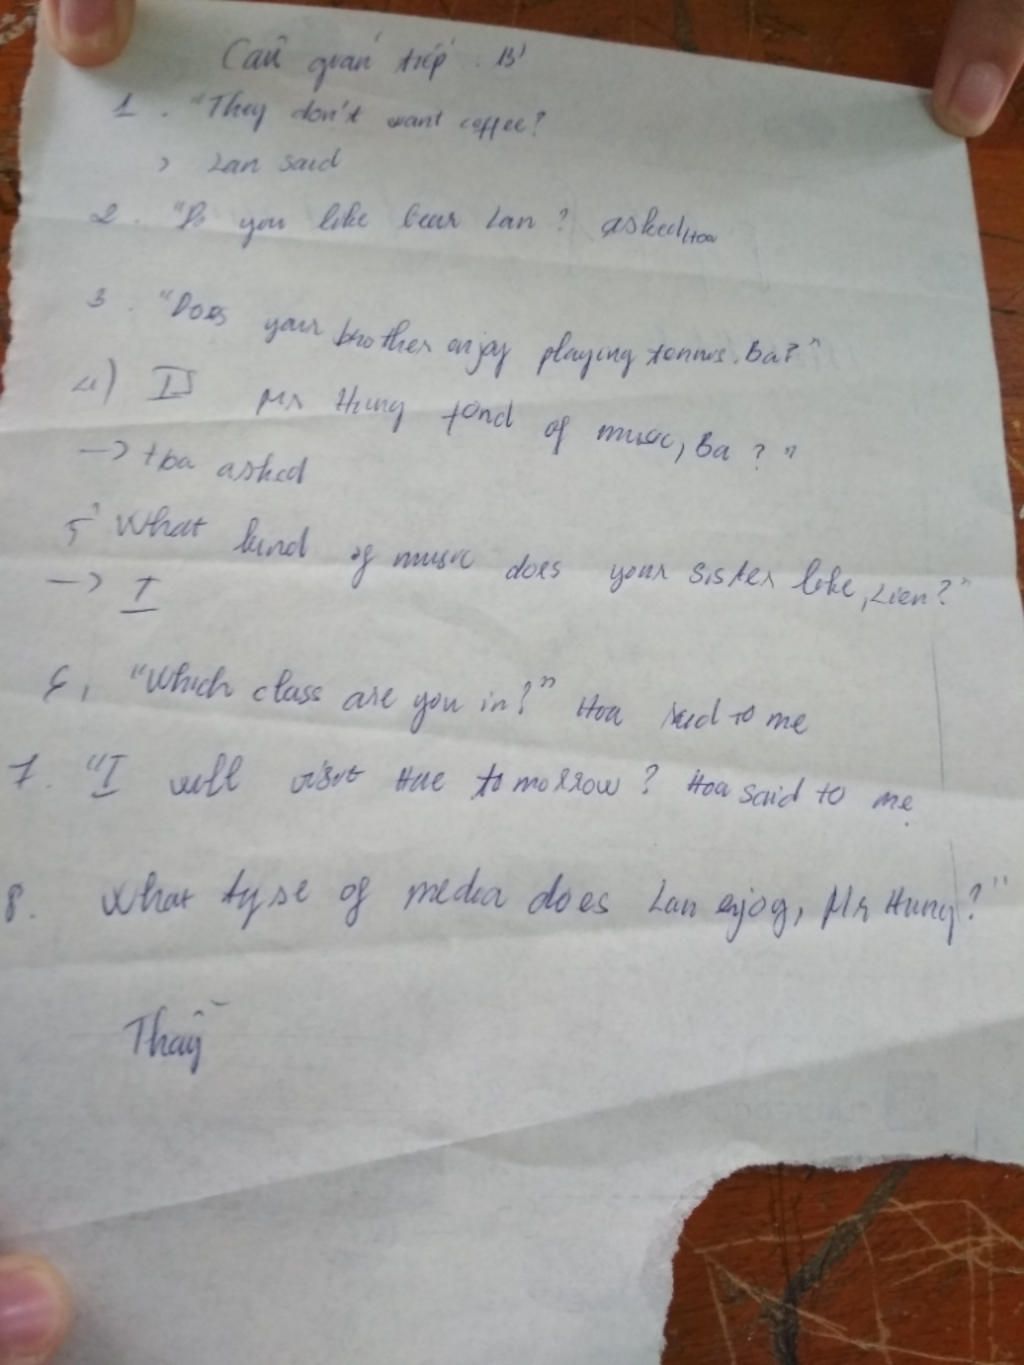 Câu gián tiếp. B
1. "They don't want coffee?
> Lan said
2. "Do you like bear Lan? asked Hoa
3. "Does your brother enjoy playing tennis. Ba?"
4) Is Mr Hung fond of music, Ba?"
-> Hoa asked
5 "What kind of music does your sister like, Lien?"
-> I
6, "Which class are you in?" Hoa said to me
7. "I will visit Hue tomorrow? Hoa said to me
8. What type of media does Lan enjoy, Mr Hung?"